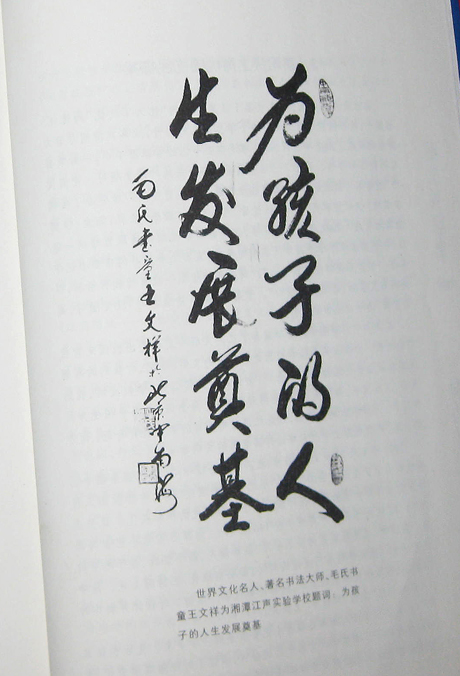 为孩子的人
生发展奠基
毛氏書童王文样于北京中南海
世界文化名人、著名书法大师、毛氏书
童王文样为湘潭江声实验学校题词：为孩
子的人生发展奠基